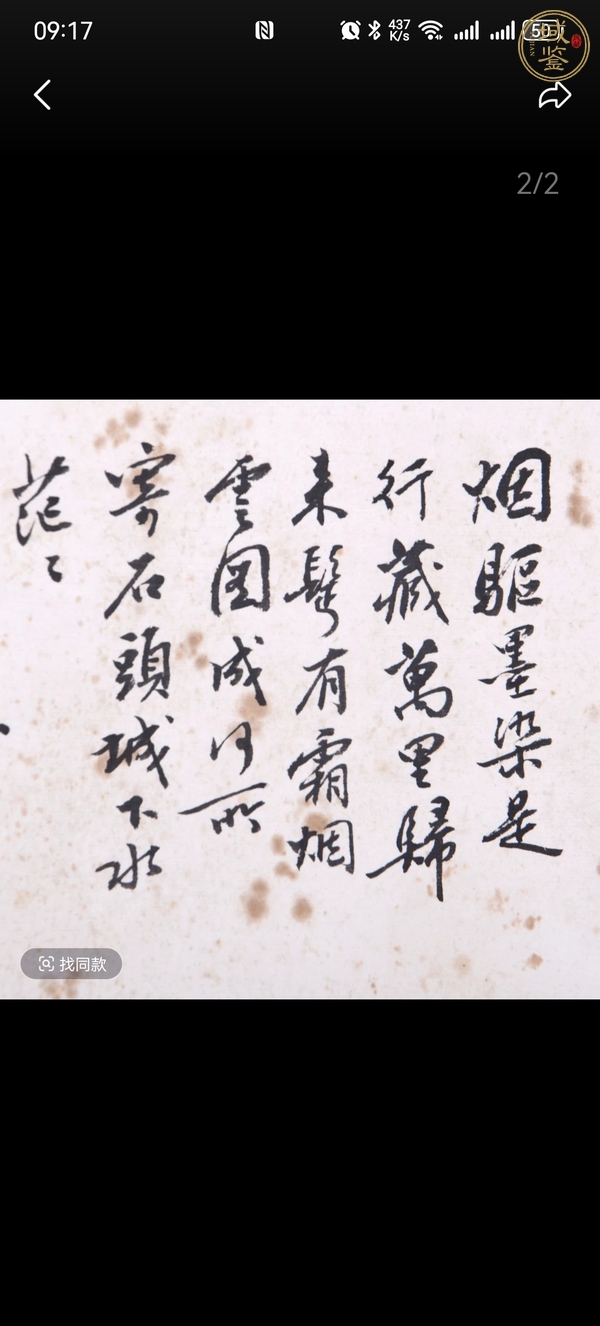 09:17
437
K/s
50
鉴
2/2
烟驅墨染是
行藏萬里歸
来鬓有霜烟
雲图成何所
寄石頭城下水
茫〻
找同款